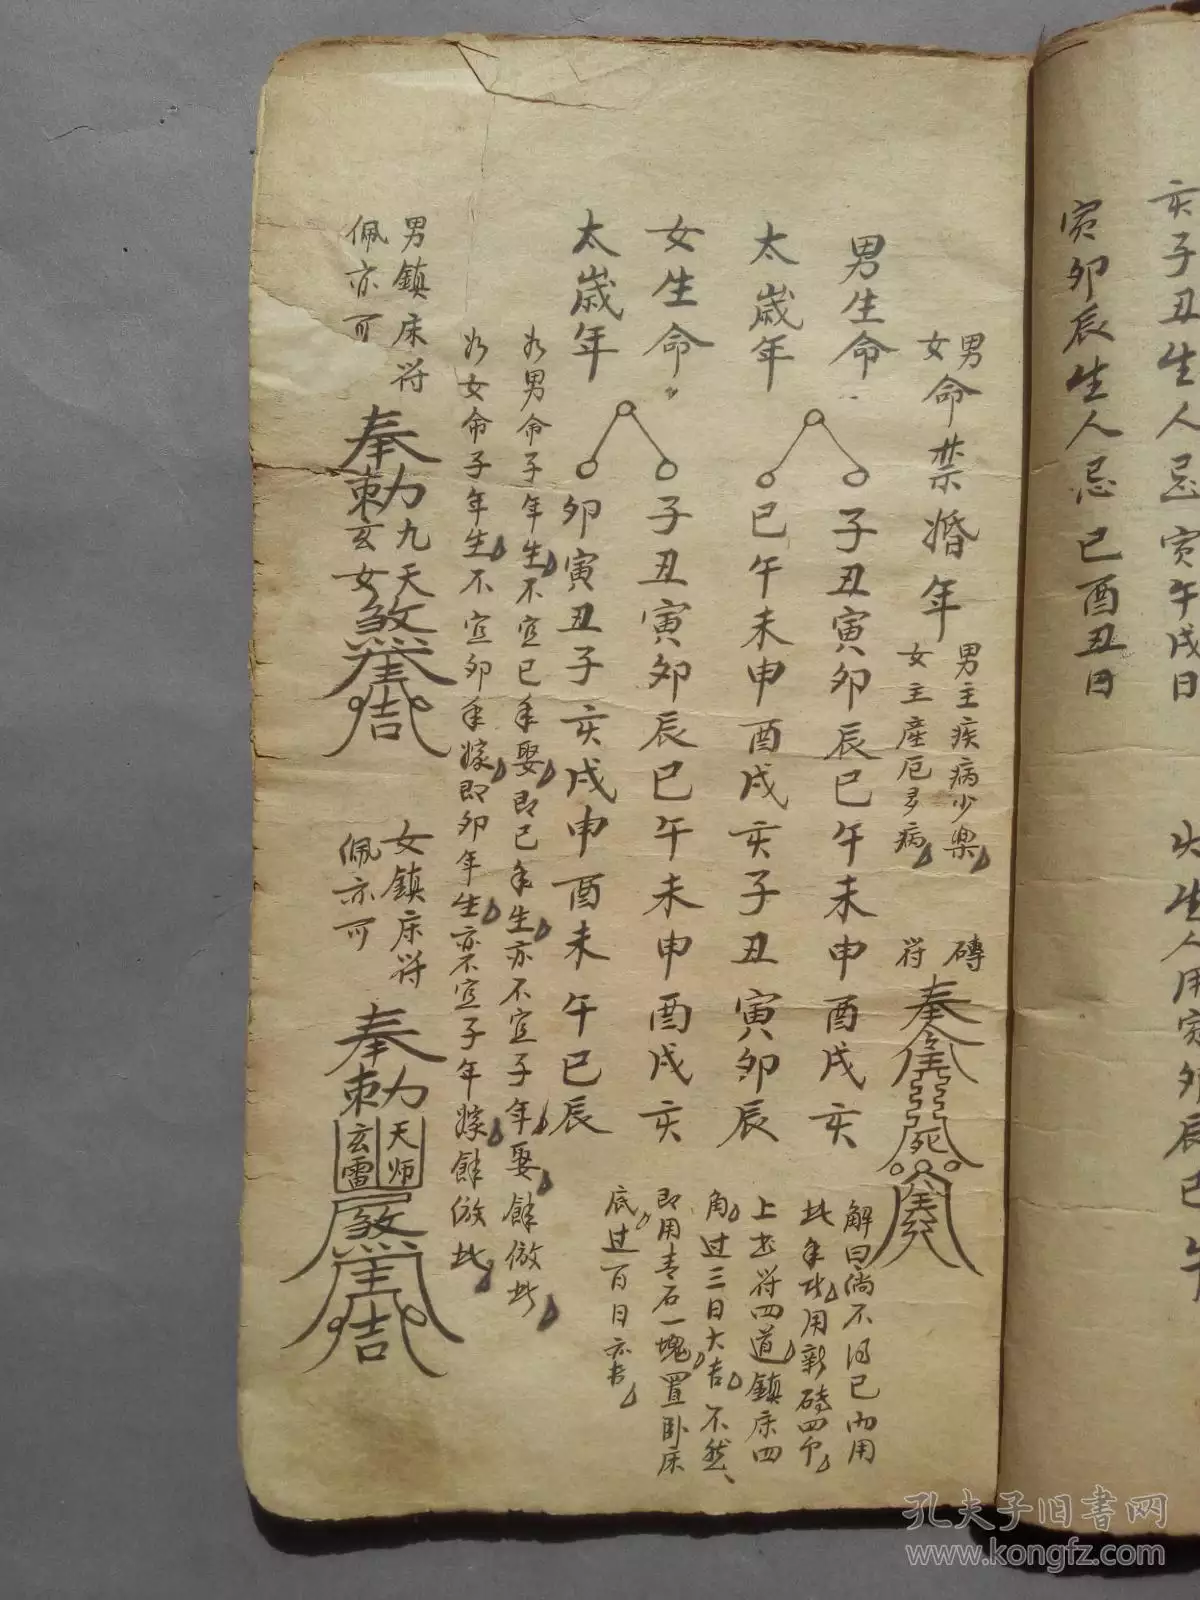 亥子丑生人忌寅午戌日
生人用寅卯辰巳午
寅卯辰生人忌巳酉丑日
男女命禁婚年
男主疾病少樂
女主產厄多病
磚符
奉
男生命 子丑寅卯辰巳午未申酉戌亥
太歲年 巳午未申酉戌亥子丑寅卯辰
解曰倘不得已而用
此年此用新磚四个
上书符四道鎮床四
角过三日大吉不然
即用青石一塊置卧床
底过百日亦吉
女生命 子丑寅卯辰巳午未申酉戌亥
太歲年 卯寅丑子亥戌申酉未午巳辰
如男命子年生不宜巳年娶即巳年生亦不宜子年娶餘倣此
如女命子年生不宜卯年嫁即卯年生亦不宜子年嫁餘倣此
男鎮床符
佩亦可
奉勅九天玄女
女鎮床符
佩亦可
奉勅
天师
玄雷
孔夫子旧书网
www.kongfz.com